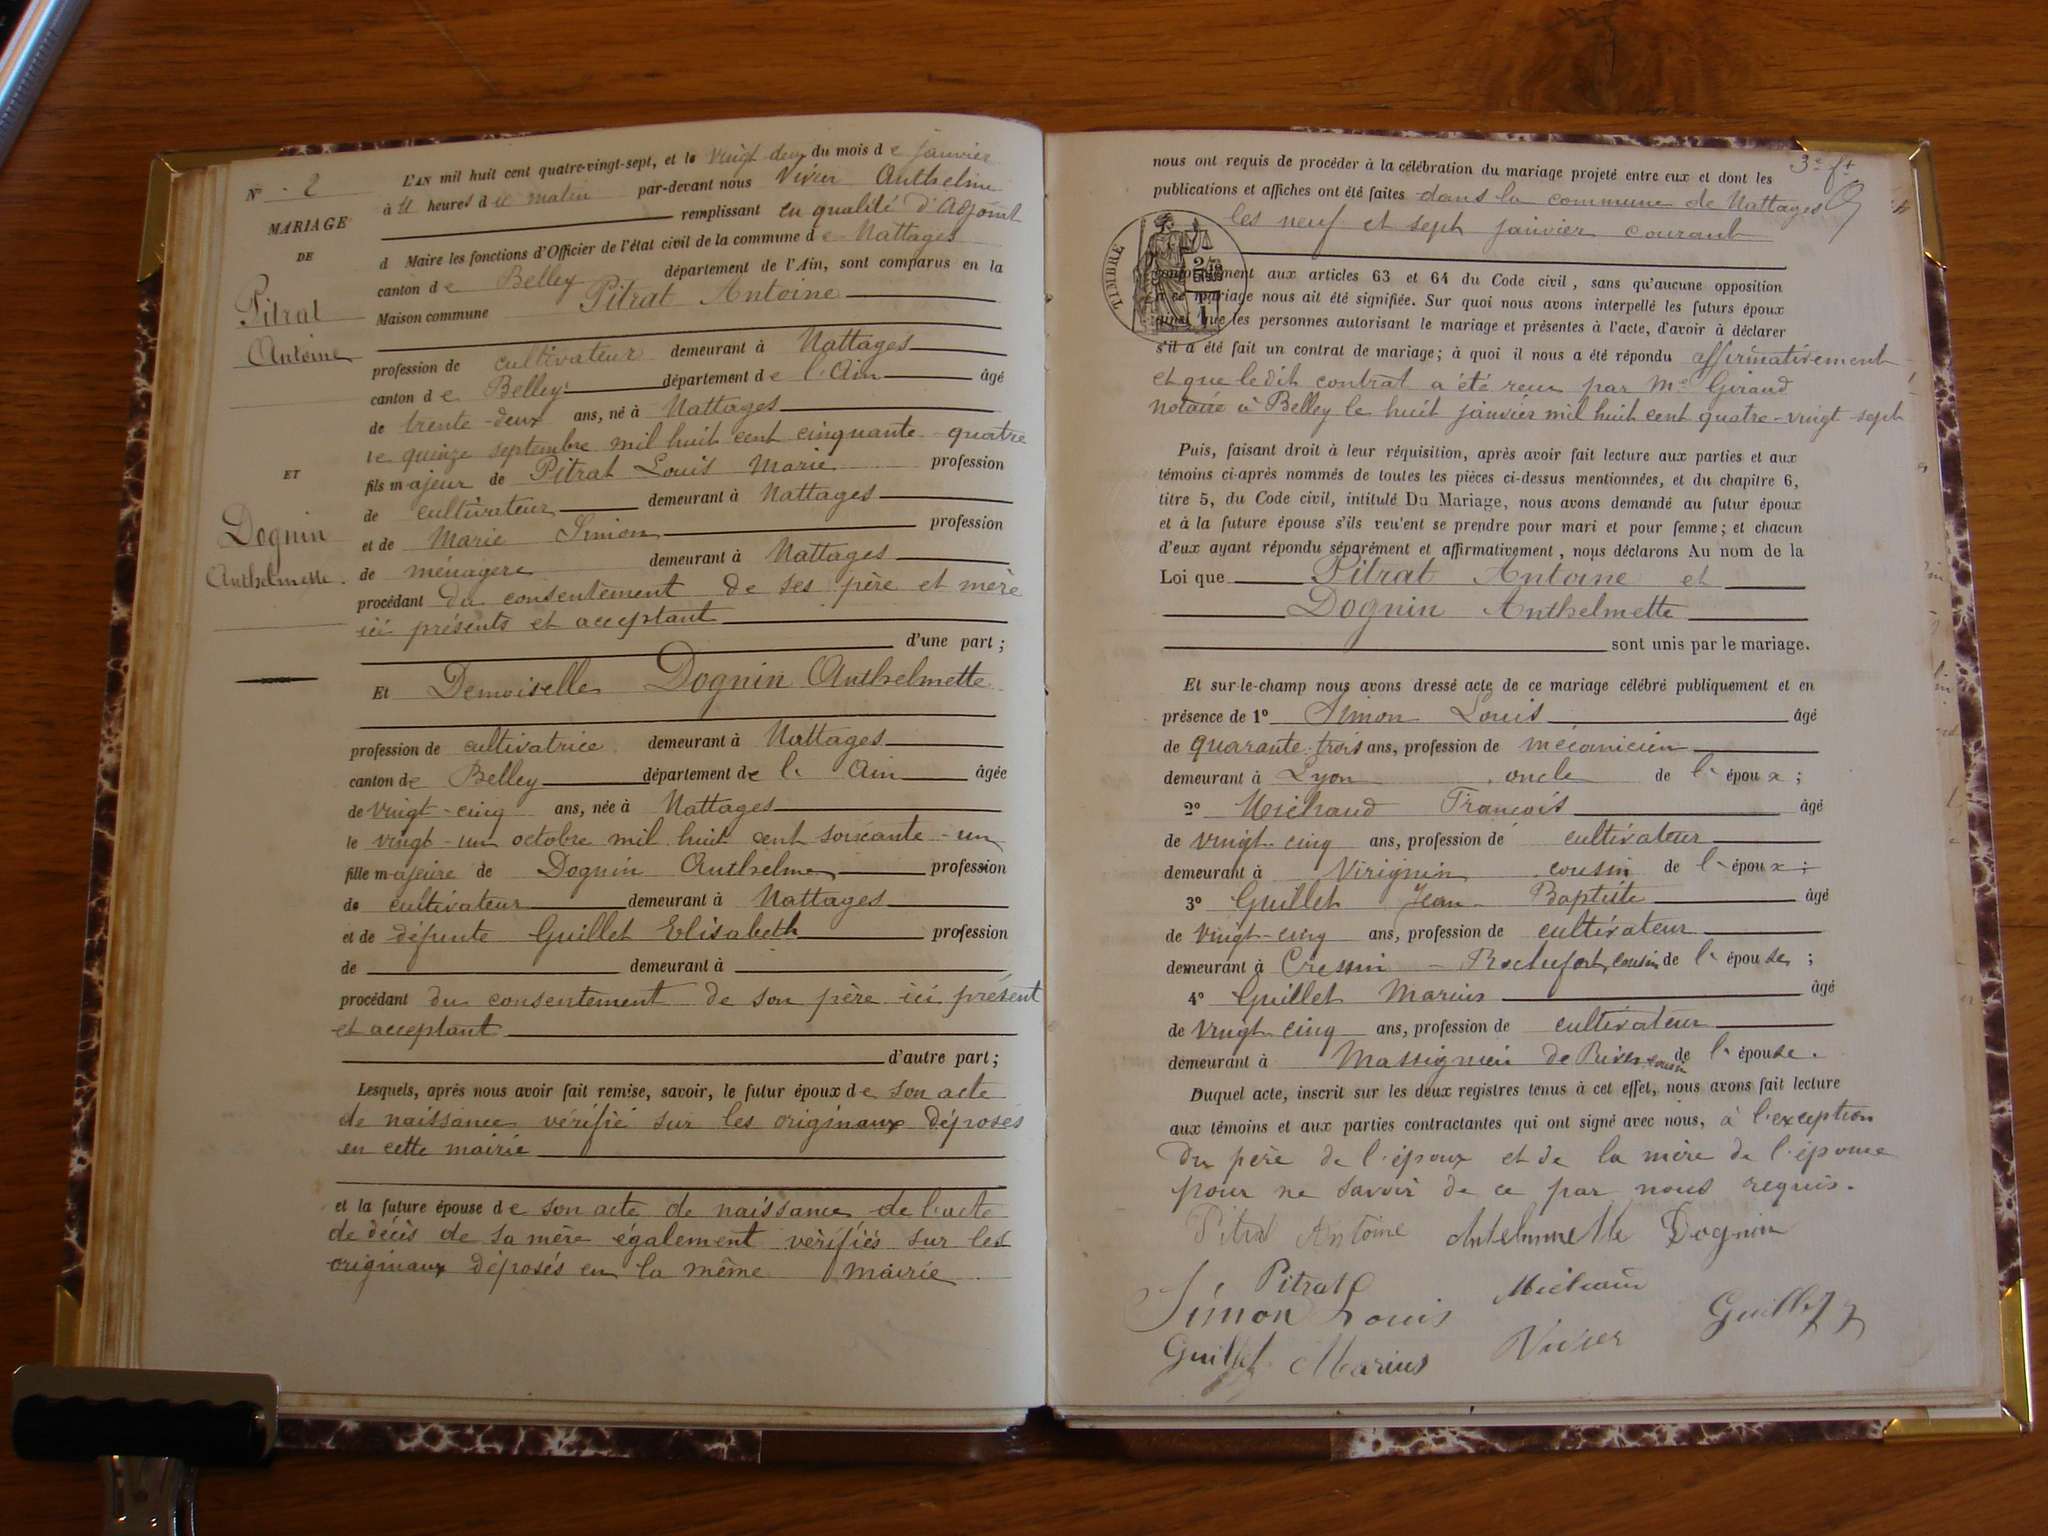 N° 2
MARIAGE
DE
Pitrat
Antoine
ET
Dognin
Anthelmette.
L'AN mil huit cent quatre-vingt-sept, et le vingt-deux du mois de janvier
à 11 heures d u matin par-devant nous Vivier Anthelme
remplissant en qualité d'adjoint
d Maire les fonctions d'Officier de l'état civil de la commune de Nattages
canton de Belley département de l'Ain, sont comparus en la
Maison commune Pitrat Antoine
profession de cultivateur demeurant à Nattages
canton de Belley département de l'Ain âgé
de trente-deux ans, né à Nattages
le quinze septembre mil huit cent cinquante-quatre
fils majeur de Pitrat Louis Marie profession
de cultivateur demeurant à Nattages
et de Marie Simon profession
de ménagère demeurant à Nattages
procédant du consentement de ses père et mère
ici présents et acceptant
d'une part ;
Et Demoiselle Dognin Anthelmette
profession de cultivatrice demeurant à Nattages
canton de Belley département de l'Ain âgée
de vingt-cinq ans, née à Nattages
le vingt-un octobre mil huit cent soixante-un
fille majeure de Dognin Anthelme profession
de cultivateur demeurant à Nattages
et de défunte Guillet Elisabeth profession
de demeurant à
procédant du consentement de son père ici présent
et acceptant
d'autre part ;
Lesquels, après nous avoir fait remise, savoir, le futur époux de son acte
de naissance vérifié sur les originaux déposés
en cette mairie
et la future épouse de son acte de naissance de l'acte
de décès de sa mère également vérifiés sur les
originaux déposés en la même mairie
3e ft
nous ont requis de procéder à la célébration du mariage projeté entre eux et dont les
publications et affiches ont été faites dans la commune de Nattages
les neuf et sept janvier courant
TIMBRE
conformément aux articles 63 et 64 du Code civil, sans qu'aucune opposition
à ce mariage nous ait été signifiée. Sur quoi nous avons interpellé les futurs époux
ainsi que les personnes autorisant le mariage et présentes à l'acte, d'avoir à déclarer
s'il a été fait un contrat de mariage ; à quoi il nous a été répondu affirmativement
et que ledit contrat a été reçu par Me Giraud
notaire à Belley le huit janvier mil huit cent quatre-vingt-sept
Puis, faisant droit à leur réquisition, après avoir fait lecture aux parties et aux
témoins ci-après nommés de toutes les pièces ci-dessus mentionnées, et du chapitre 6,
titre 5, du Code civil, intitulé Du Mariage, nous avons demandé au futur époux
et à la future épouse s'ils veu'ent se prendre pour mari et pour femme ; et chacun
d'eux ayant répondu séparément et affirmativement, nous déclarons Au nom de la
Loi que Pitrat Antoine et
Dognin Anthelmette
sont unis par le mariage.
Et sur-le-champ nous avons dressé acte de ce mariage célébré publiquement et en
présence de 1° Simon Louis âgé
de quarante-trois ans, profession de mécanicien
demeurant à Lyon oncle de l'époux ;
2° Michaud François âgé
de vingt-cinq ans, profession de cultivateur
demeurant à Virignin cousin de l'époux ;
3° Guillet Jean-Baptiste âgé
de vingt-cinq ans, profession de cultivateur
demeurant à Cressin-Rochefort, cousin de l'épouse ;
4° Guillet Marius âgé
de vingt-cinq ans, profession de cultivateur
demeurant à Massignieu de Rives cousin de l'épouse.
Duquel acte, inscrit sur les deux registres tenus à cet effet, nous avons fait lecture
aux témoins et aux parties contractantes qui ont signé avec nous, à l'exception
du père de l'époux et de la mère de l'épouse
pour ne savoir de ce par nous requis.
Pitrat Antoine Antelmmette Dognin
Pitrat Michaud
Simon Louis Guillet
Guillet Marius Vivier